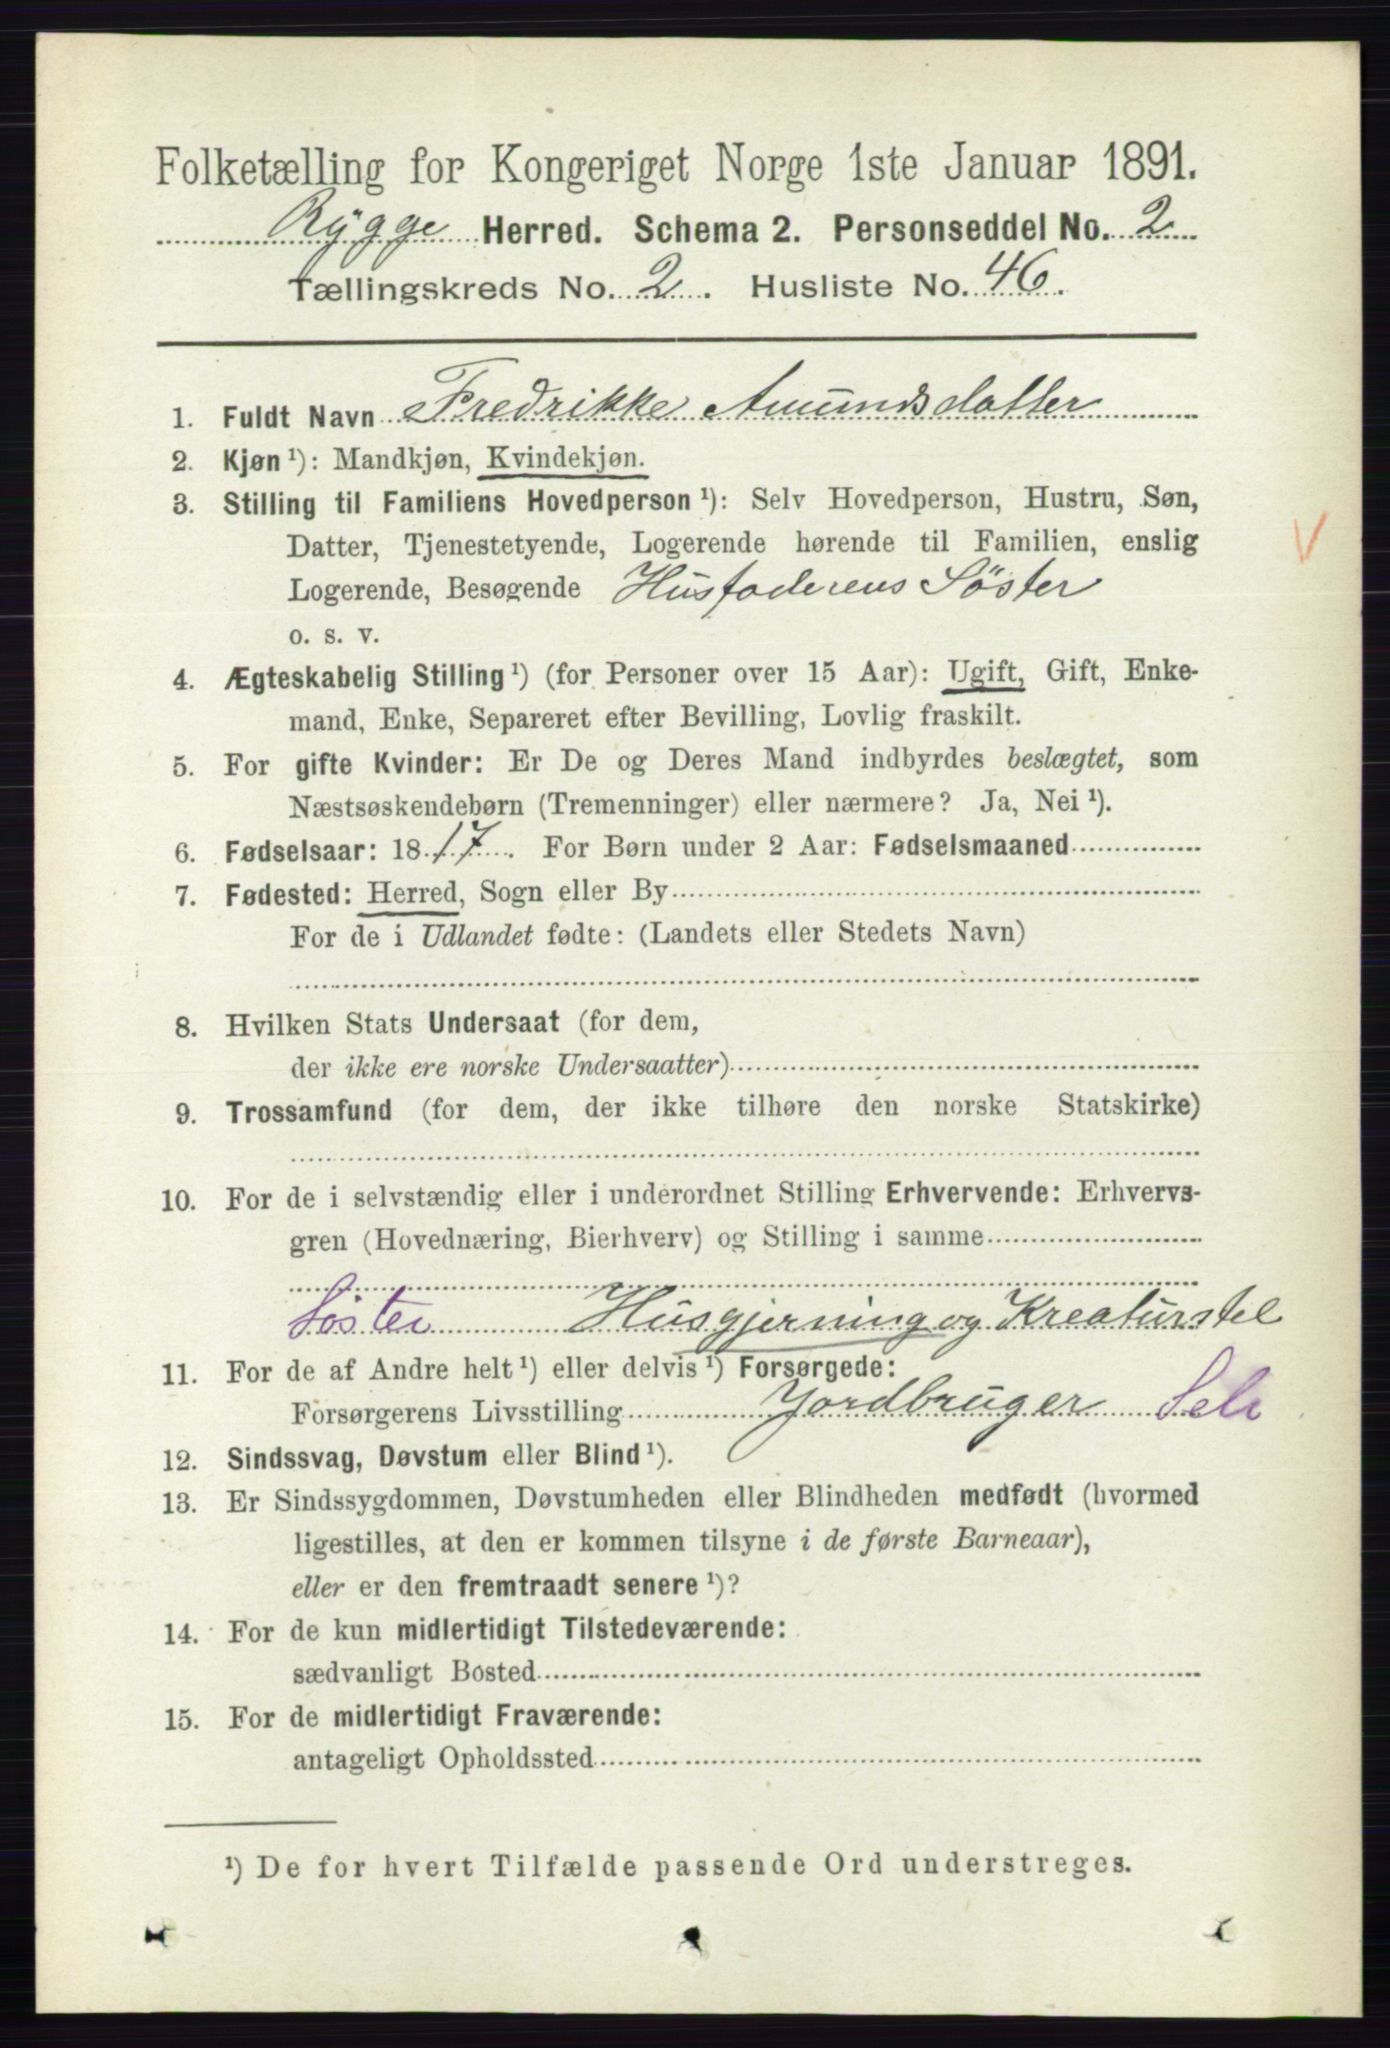 Folketælling for Kongeriget Norge 1ste Januar 1891.
Rygge Herred. Schema 2. Personseddel No. 2
Tællingskreds No. 2. Husliste No. 46.
1. Fuldt Navn Fredrikke Amundsdatter
2. Kjøn ¹): Mandkjøn, Kvindekjøn.
3. Stilling til Familiens Hovedperson ¹): Selv Hovedperson, Hustru, Søn,
Datter, Tjenestetyende, Logerende hørende til Familien, enslig
Logerende, Besøgende Husfaderens Söster
o. s. v.
4. Ægteskabelig Stilling ¹) (for Personer over 15 Aar): Ugift, Gift, Enke-
mand, Enke, Separeret efter Bevilling, Lovlig fraskilt.
5. For gifte Kvinder: Er De og Deres Mand indbyrdes beslægtet, som
Næstsøskendebørn (Tremenninger) eller nærmere? Ja, Nei ¹).
6. Fødselsaar: 1817. For Børn under 2 Aar: Fødselsmaaned
7. Fødested: Herred, Sogn eller By
For de i Udlandet fødte: (Landets eller Stedets Navn)
8. Hvilken Stats Undersaat (for dem,
der ikke ere norske Undersaatter)
9. Trossamfund (for dem, der ikke tilhøre den norske Statskirke)
10. For de i selvstændig eller i underordnet Stilling Erhvervende: Erhvervs-
gren (Hovednæring, Bierhverv) og Stilling i samme
Söster Husgjerning og Kreaturstel
11. For de af Andre helt ¹) eller delvis ¹) Forsørgede:
Forsørgerens Livsstilling Jordbruger Selv
12. Sindssvag, Døvstum eller Blind ¹).
13. Er Sindssygdommen, Døvstumheden eller Blindheden medfødt (hvormed
ligestilles, at den er kommen tilsyne i de første Barneaar),
eller er den fremtraadt senere ¹)?
14. For de kun midlertidigt Tilstedeværende:
sædvanligt Bosted
15. For de midlertidigt Fraværende:
antageligt Opholdssted
¹) De for hvert Tilfælde passende Ord understreges.